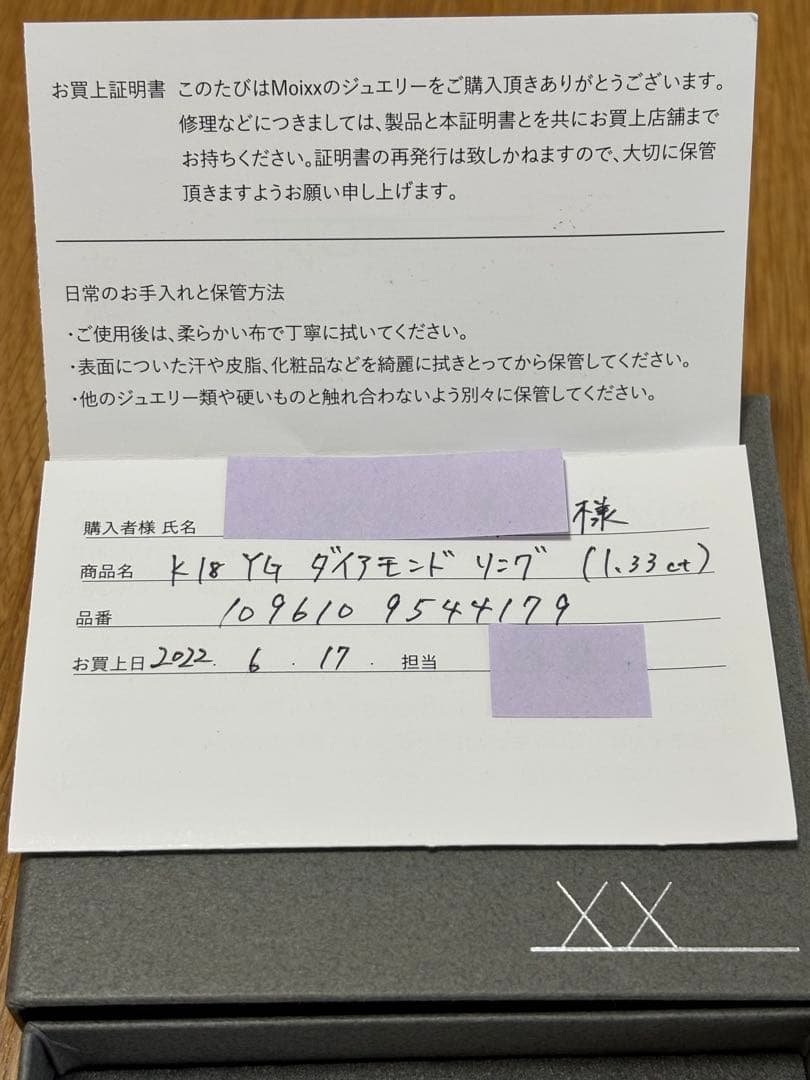 お買上証明書 このたびはMoixxのジュエリーをご購入頂きありがとうございます。
修理などにつきましては、製品と本証明書とを共にお買上店舗まで
お持ちください。証明書の再発行は致しかねますので、大切に保管
頂きますようお願い申し上げます。
日常のお手入れと保管方法
・ご使用後は、柔らかい布で丁寧に拭いてください。
・表面についた汗や皮脂、化粧品などを綺麗に拭きとってから保管してください。
・他のジュエリー類や硬いものと触れ合わないよう別々に保管してください。
購入者様 氏名 様
商品名 K18 YG ダイアモンド リング (1.33ct)
品番 109610 9544179
お買上日 2022. 6 . 17 . 担当
XX